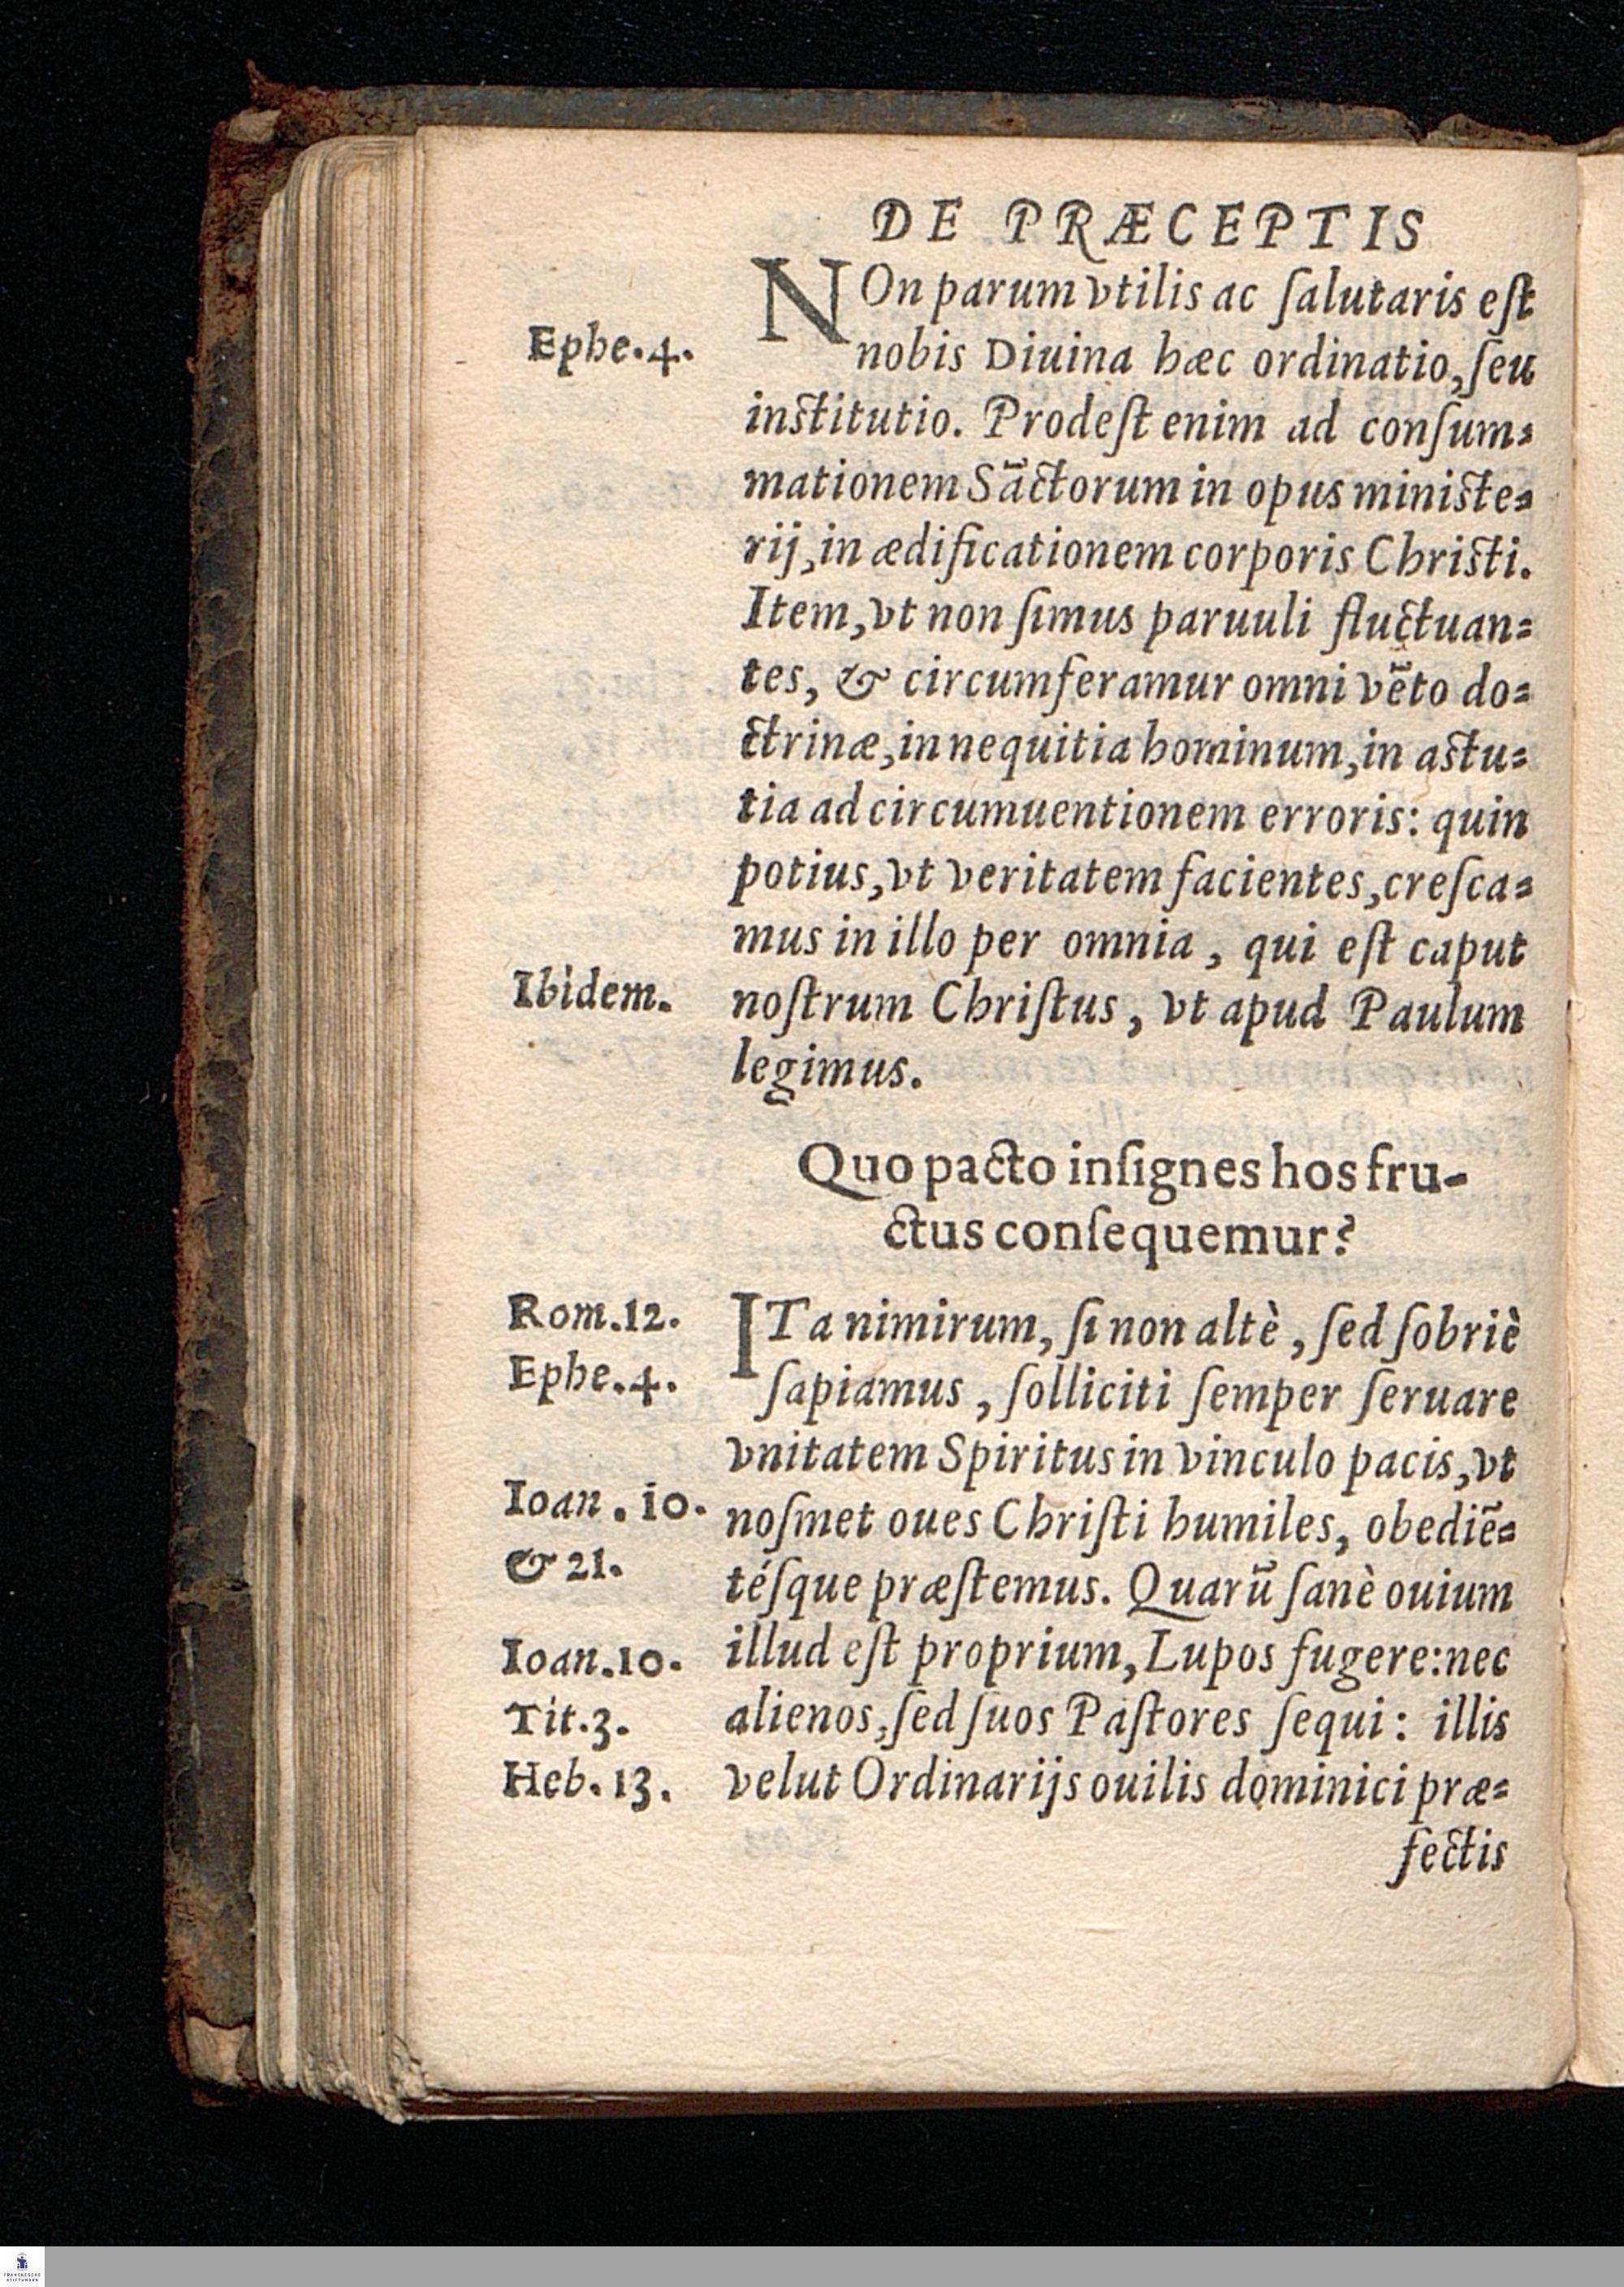 DE PRÆCEPTIS
NOn parum vtilis ac ſalutaris eſt
Ephe.4.
nobis Diuina hæc ordinatio, ſeu
inſtitutio. Prodeſt enim ad conſum⸗
mationem Sāctorum in opus miniſte⸗
rij, in ædificationem corporis Chriſti.
Item, vt non ſimus paruuli fluctuan⸗
tes, & circumferamur omni vēto do⸗
ctrinæ, in nequitia hominum, in aſtu⸗
tia ad circumuentionem erroris: quin
potius, vt veritatem facientes, creſca⸗
mus in illo per omnia, qui eſt caput
Ibidem.
noſtrum Chriſtus, vt apud Paulum
legimus.
Quo pacto inſignes hos fru-
ctus conſequemur?
Rom.12.
ITa nimirum, ſi non altè, ſed ſobriè
Ephe.4.
ſapiamus, ſolliciti ſemper ſeruare
vnitatem Spiritus in vinculo pacis, vt
Ioan. 10.
noſmet oues Chriſti humiles, obediē⸗
& 21.
téſque præſtemus. Quarū ſanè ouium
Ioan.10.
illud eſt proprium, Lupos fugere: nec
Tit.3.
alienos, ſed ſuos Paſtores ſequi: illis
Heb. 13.
velut Ordinarijs ouilis dominici præ⸗
fectis
FRANCKESCHE
STIFTUNGEN